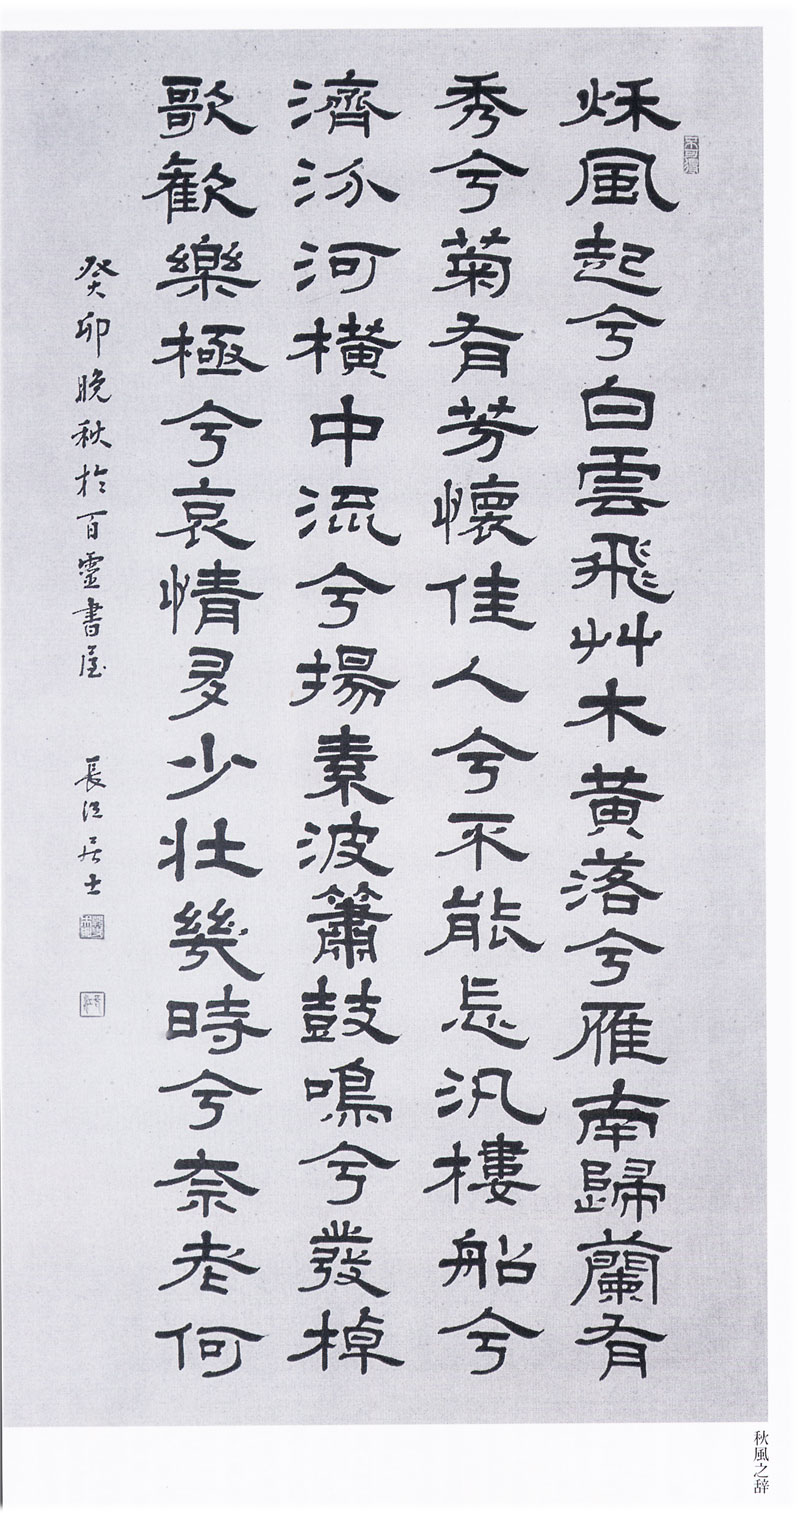 秌風起兮白雲飛艸木黄落兮雁南歸蘭有
秀兮菊有芳懷佳人兮不能忘汎樓船兮
濟汾河橫中流兮揚素波簫鼓鳴兮發棹
歌歡樂極兮哀情多少壯幾時兮奈老何
癸卯晚秋於百靈書屋 長江居士
秋風之辞